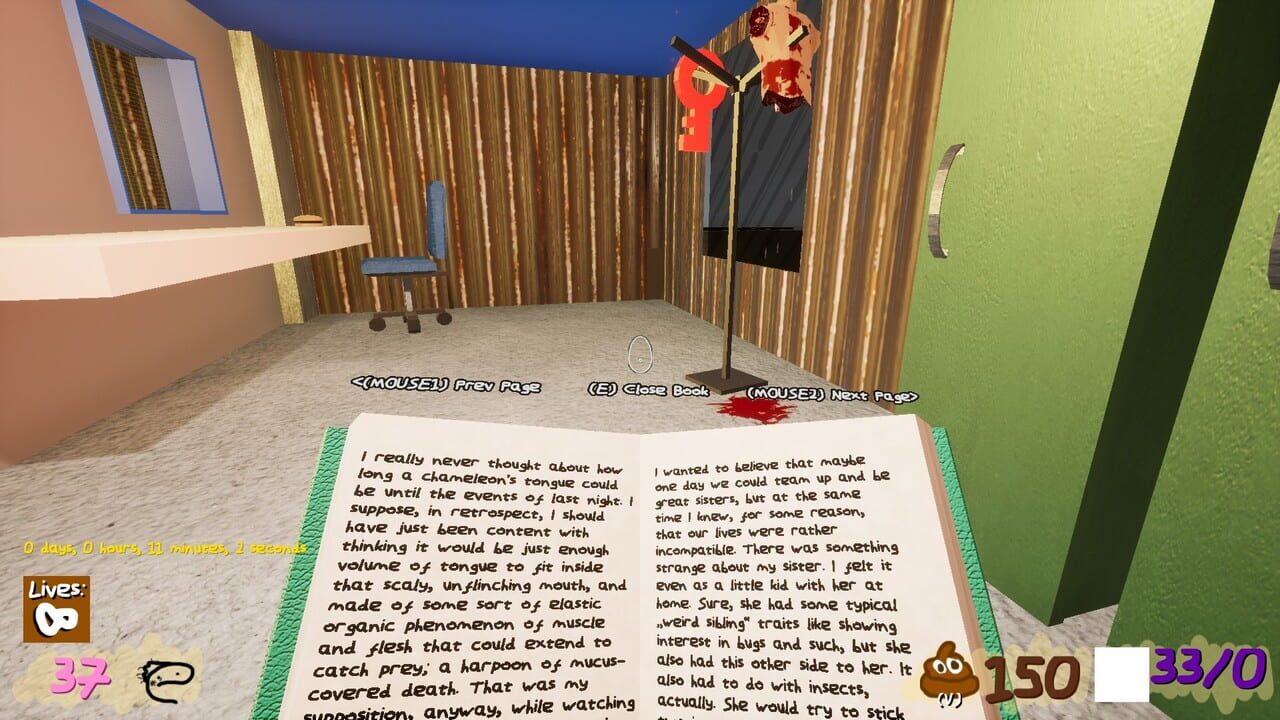 <(MOUSE1) Prev Page
(E) Close Book
(MOUSE2) Next Page>
I really never thought about how
long a chameleon's tongue could
be until the events of last night. I
suppose, in retrospect, I should
have just been content with
thinking it would be just enough
volume of tongue to fit inside
that scaly, unflinching mouth, and
made of some sort of elastic
organic phenomenon of muscle
and flesh that could extend to
catch prey; a harpoon of mucus-
covered death. That was my
supposition, anyway, while watching
I wanted to believe that maybe
one day we could team up and be
great sisters, but at the same
time I knew, for some reason,
that our lives were rather
incompatible. There was something
strange about my sister. I felt it
even as a little kid with her at
home. Sure, she had some typical
„weird sibling" traits like showing
interest in bugs and such, but she
also had this other side to her. It
also had to do with insects,
actually. She would try to stick
0 days, 0 hours, 11 minutes, 2 seconds
Lives:
37
150
(V)
33/0